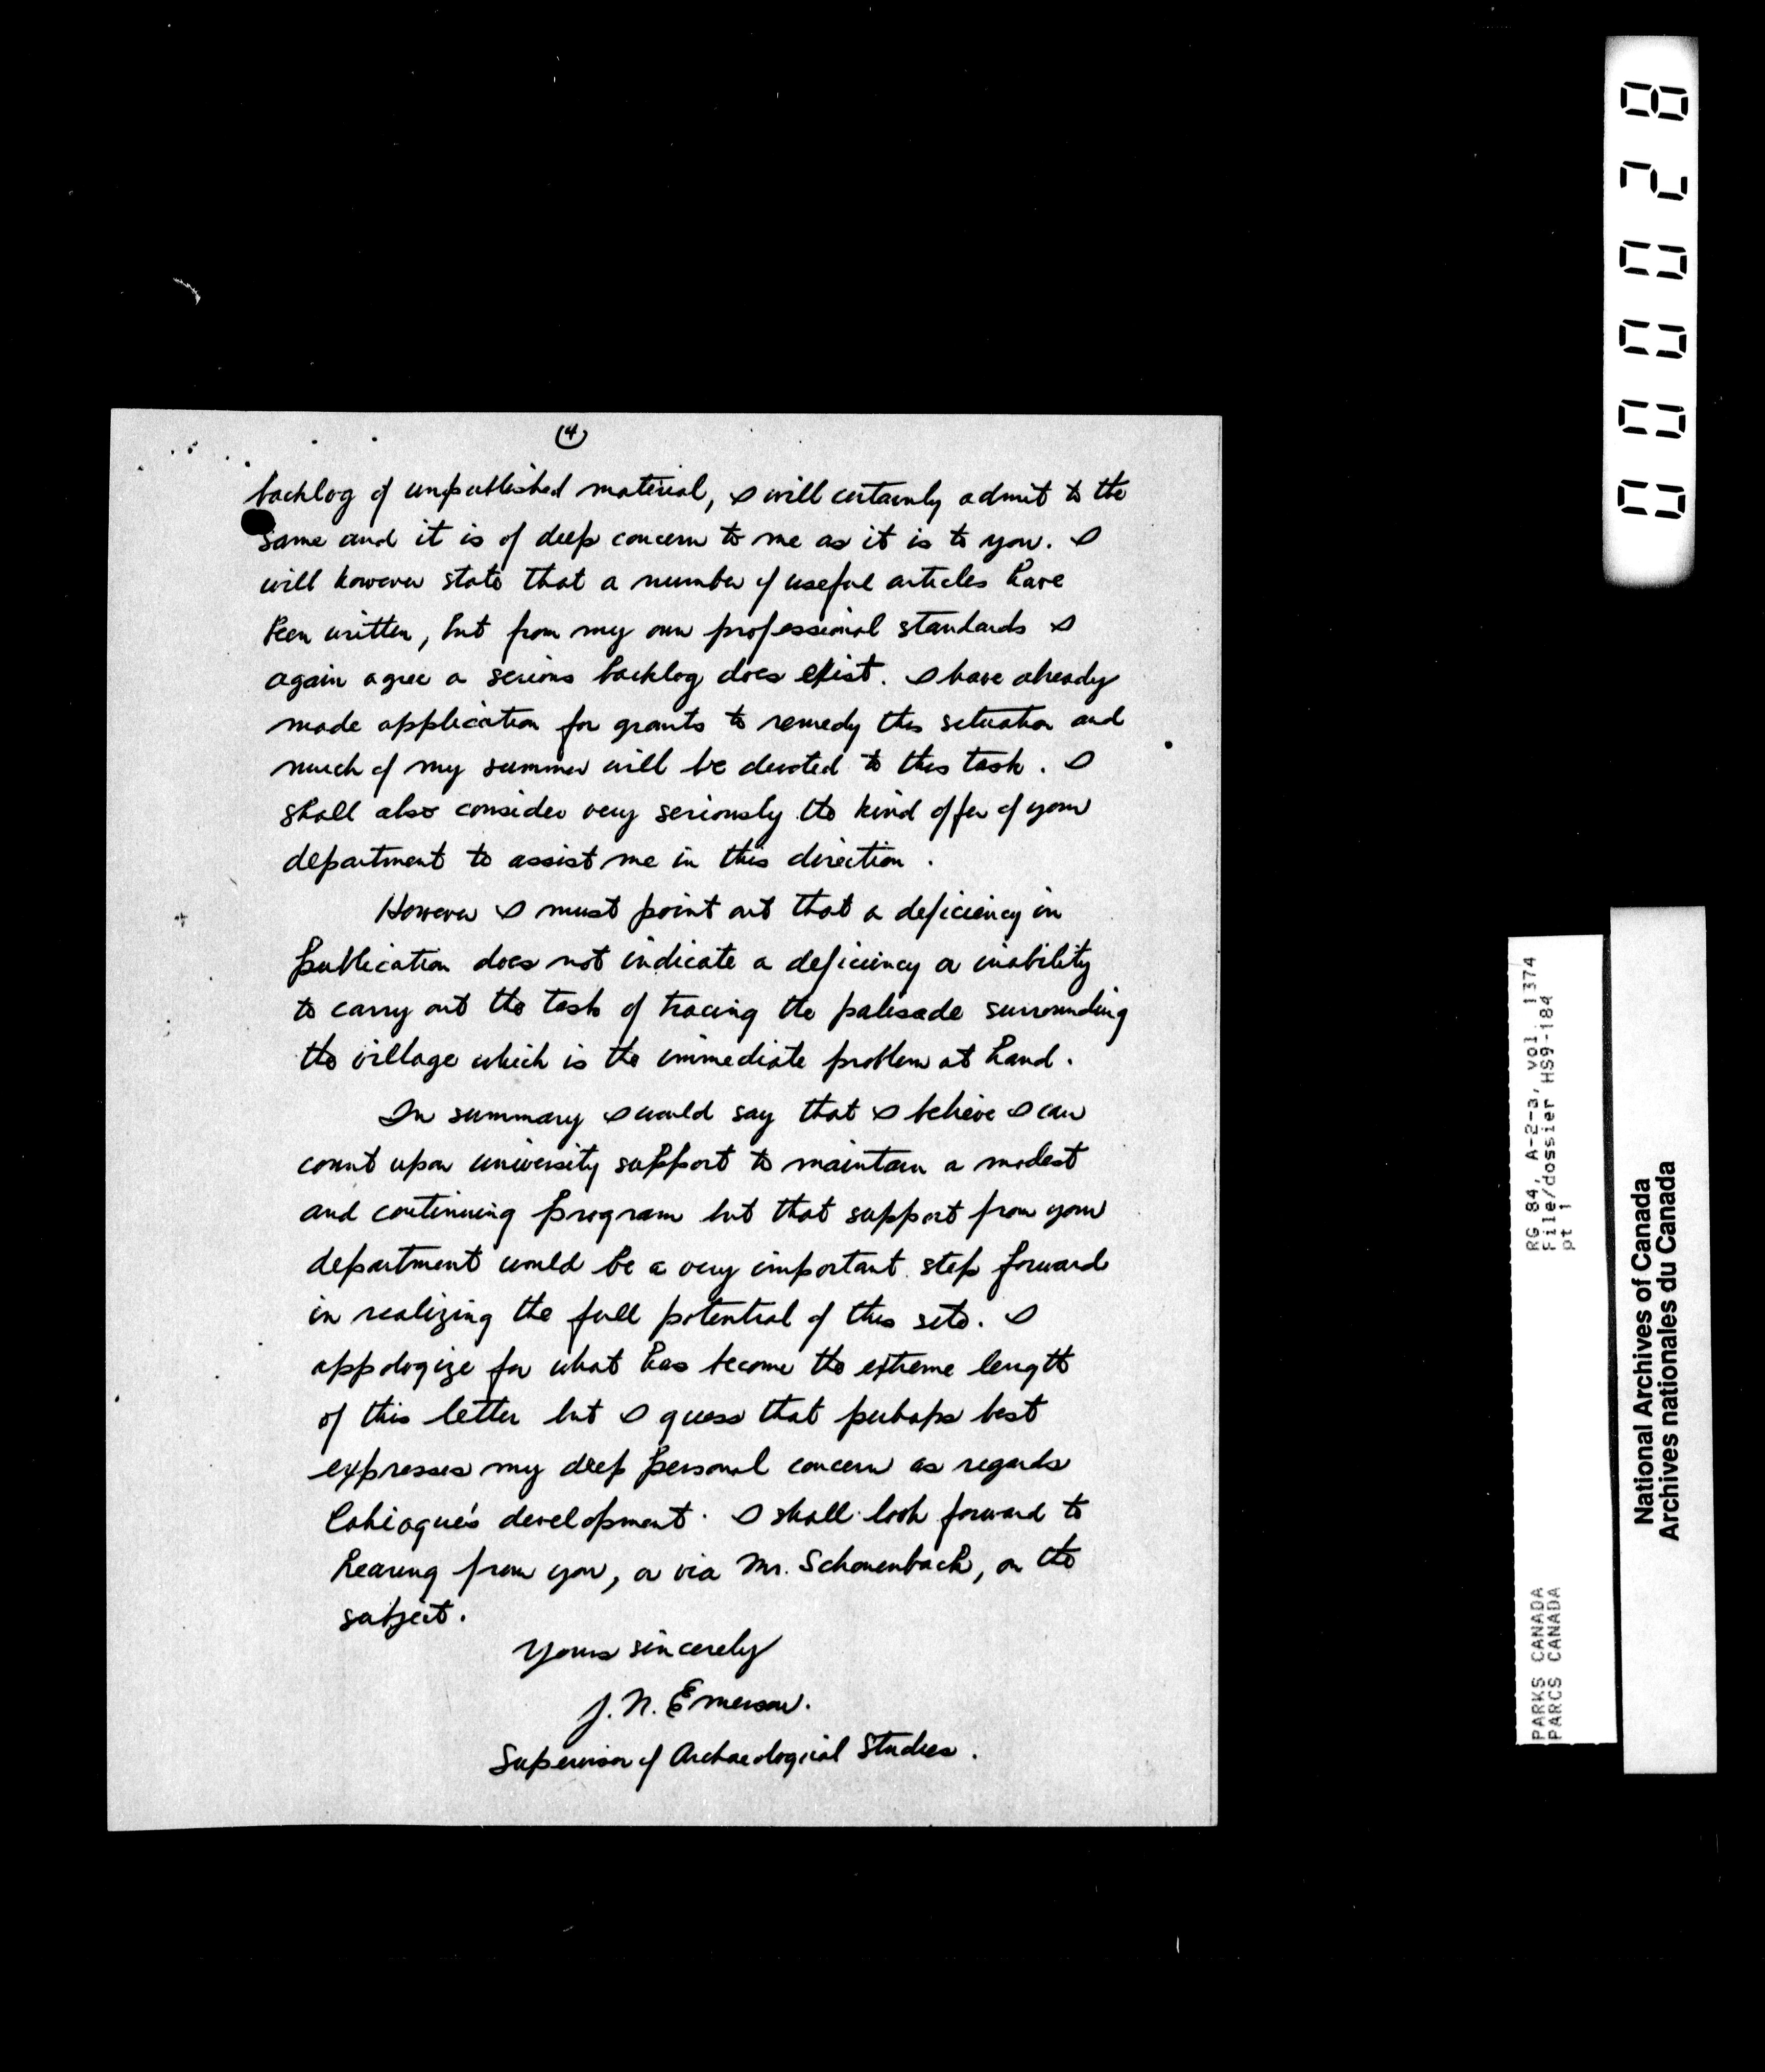 (4)
backlog of unpublished material, I will certainly admit to the
same and it is of deep concern to me as it is to you. I
will however state that a number of useful articles have
been written, but from my own professional standards I
again agree a serious backlog does exist. I have already
made application for grants to remedy this situation and
much of my summer will be devoted to this task. I
shall also consider very seriously the kind offer of your
department to assist me in this direction.
However I must point out that a deficiency in
publication does not indicate a deficiency or inability
to carry out the task of tracing the palisade surrounding
the village which is the immediate problem at hand.
In summary I would say that I believe I can
count upon university support to maintain a modest
and continuing program but that support from your
department would be a very important step forward
in realizing the full potential of this site. I
appologize for what has become the extreme length
of this letter but I guess that perhaps best
expresses my deep personal concern as regards
Cahiague's development. I shall look forward to
hearing from you, or via Mr. Schonenbach, on the
subject.
Yours sincerely
J. N. Emerson.
Supervisor of Archaeological Studies.
000028
RG 84, A-2-a, vol. 1374
File/dossier HS9-184
pt 1
PARKS CANADA
PARCS CANADA
National Archives of Canada
Archives nationales du Canada